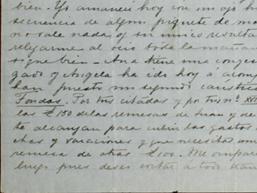 bien. Yo amanecí hoy con un ojo h
secuencia de algún piquete de mo
no vale nada y su único resulta
relajarme al ocio toda la mañana
sigue bien. Ana tiene una conges
gado y Angela ha ido hoy á acomp
han puesto un segundo caustic
Fondos. Por tus citadas y por tus nos. XVI
las £150 de las remesas de Juan y de
te alcanzan para cubrir los gastos
chas y vacaciones y que necesitas un
remesa de otras £100. Me ompare
luego pues deseo